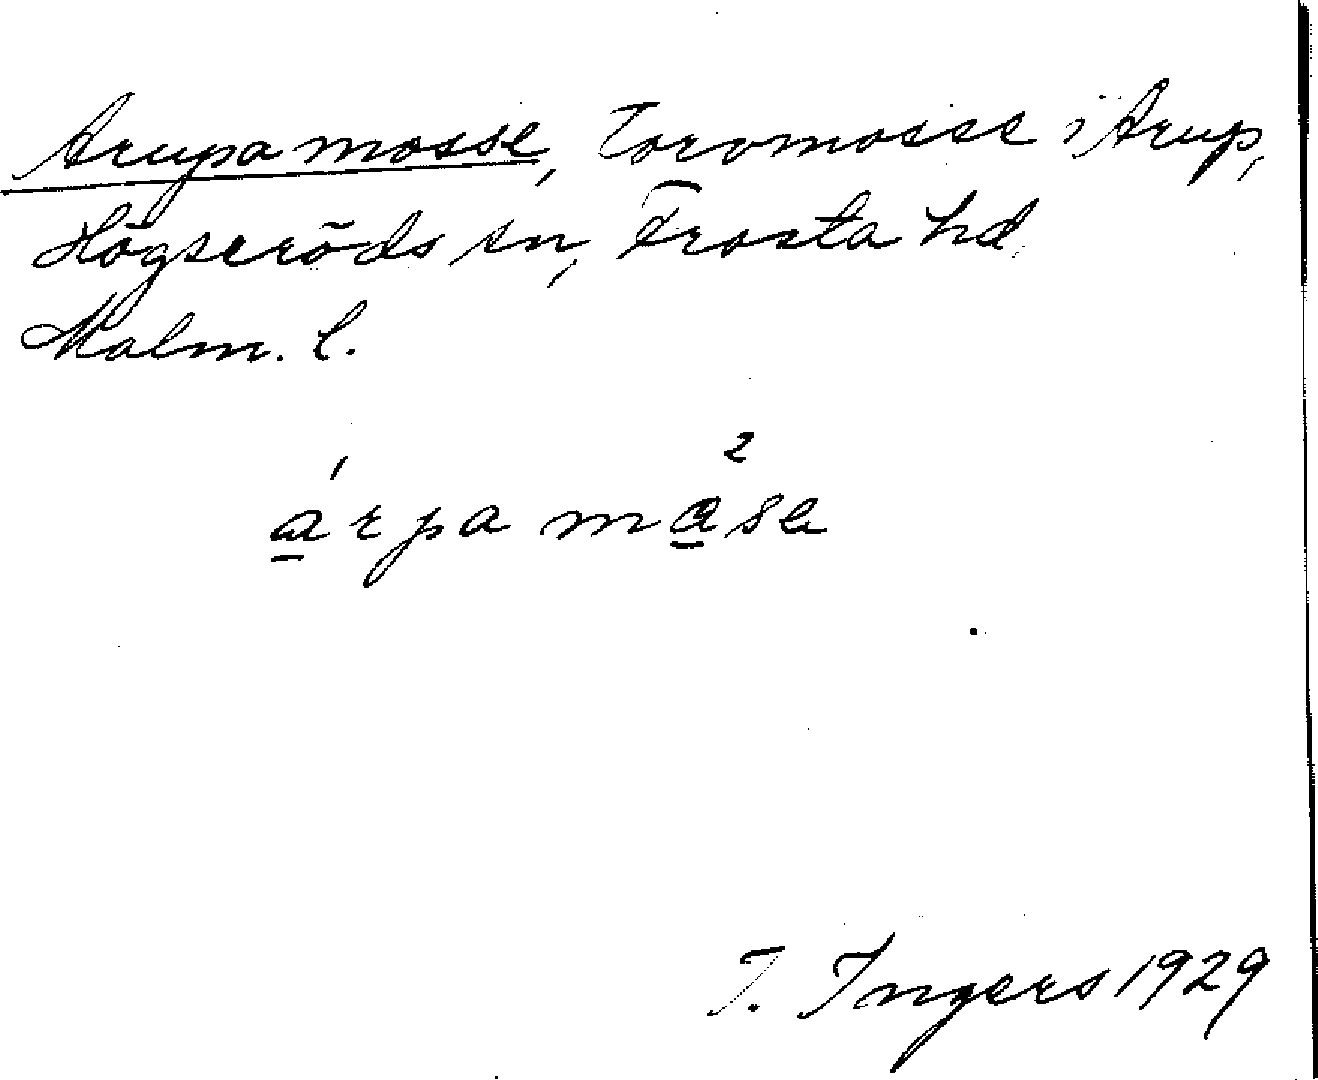 Arupamosse, Torvmosse i Arup,
Högseröds sn, Frosta hd
Malm. l.
a̲rpa ma̲sa
I. Ingers 1929